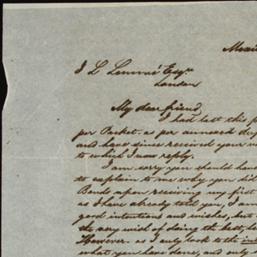 Mexi
J L Lemmé Esqr
London
My dear friend,
I had last this p
per Packet as per annexed dup
and have since received your
to which I now reply.
I am sorry you should have
to explain to me why you did
Bonds upon receiving my first
as I have already told you, I am
good intentions and wishes, but
the very wish of doing the best, be
However, as I only look to the int
what you have done, and only